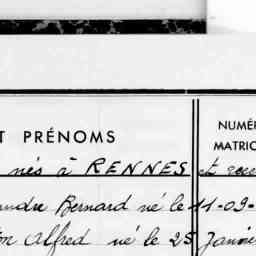 T PRÉNOMS
NUMÉR
MATRIC
nés à RENNES et
Bernard né le 11-09-
Alfred né le 25 Janvie